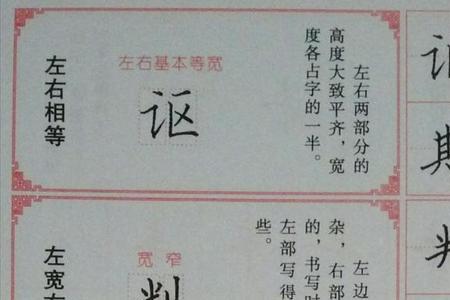 左右相等
左右基本等宽
讴
左右两部分的
高度大致平齐，宽
度各占字的一半。
左宽
宽窄
判
左边
杂，右部
的，书写时
左部写得
些。
期
判